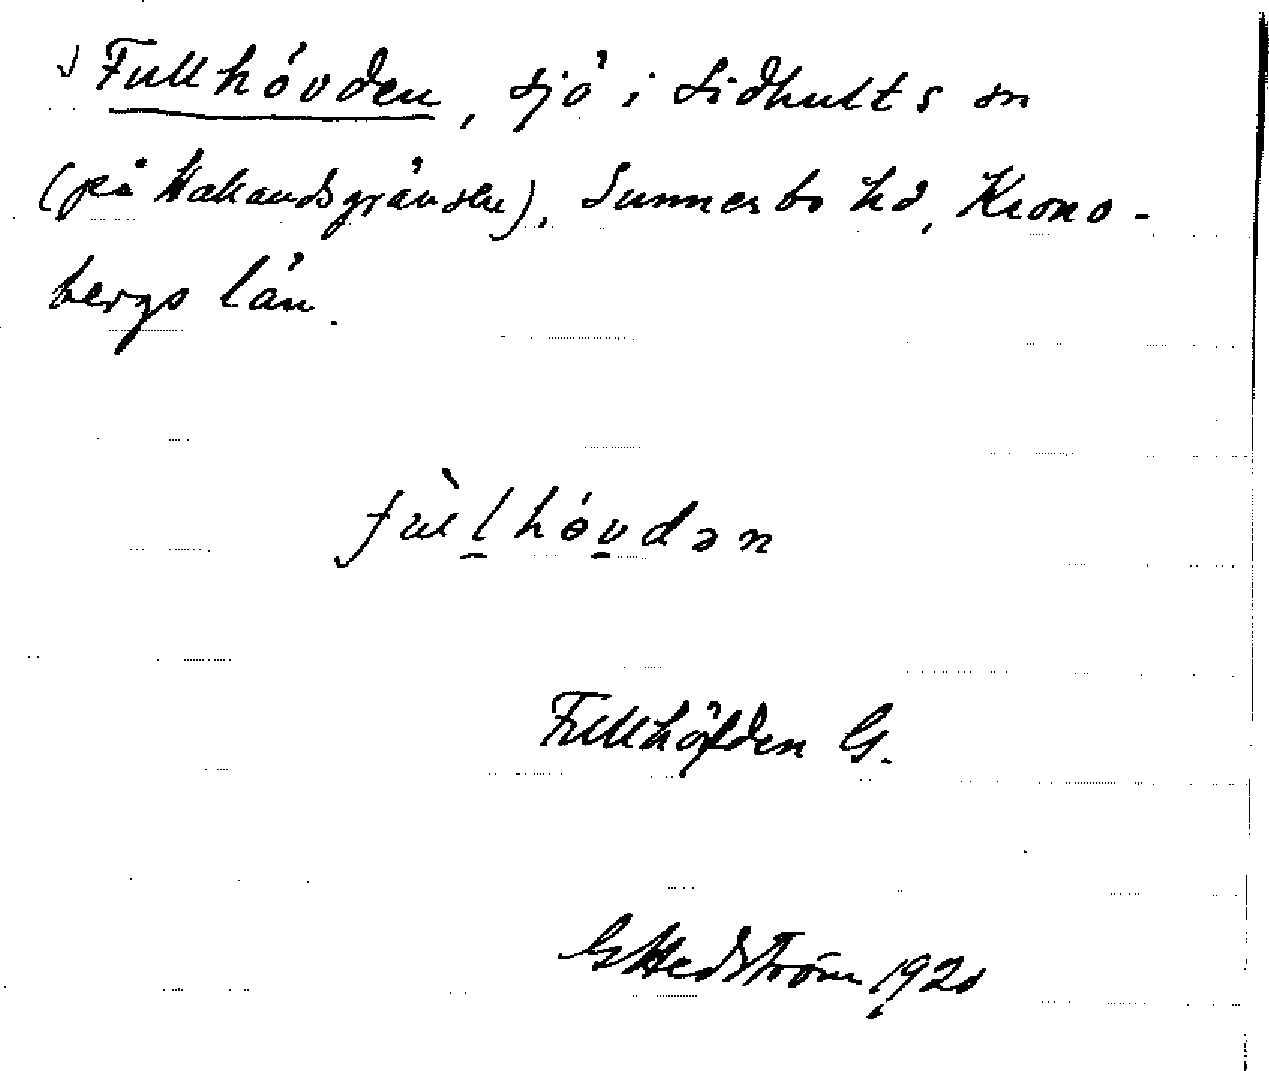 Fullhövden, sjö i Lidhults sn
(på Hallandsgränsen), Sunnerbo hd, Krono-
bergs län.
fu̇l̲höv̲dən
Fullhöfden G.
G Hedström 1920